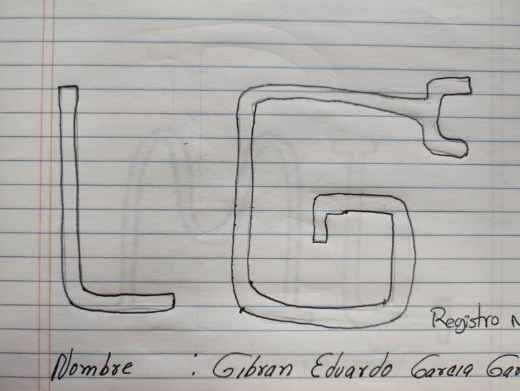 L G
Registro
Nombre : Gibran Eduardo Garcia